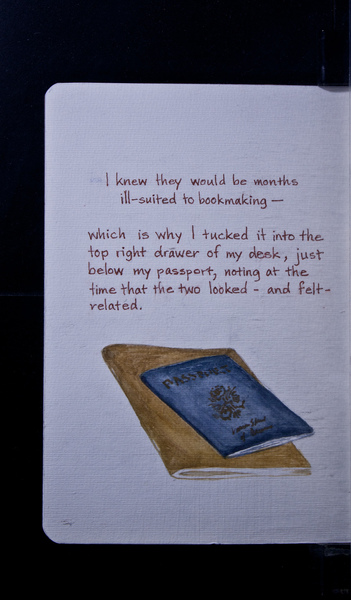 I knew they would be months
ill-suited to bookmaking —
which is why I tucked it into the
top right drawer of my desk, just
below my passport, noting at the
time that the two looked - and felt-
related.
PASSPORT